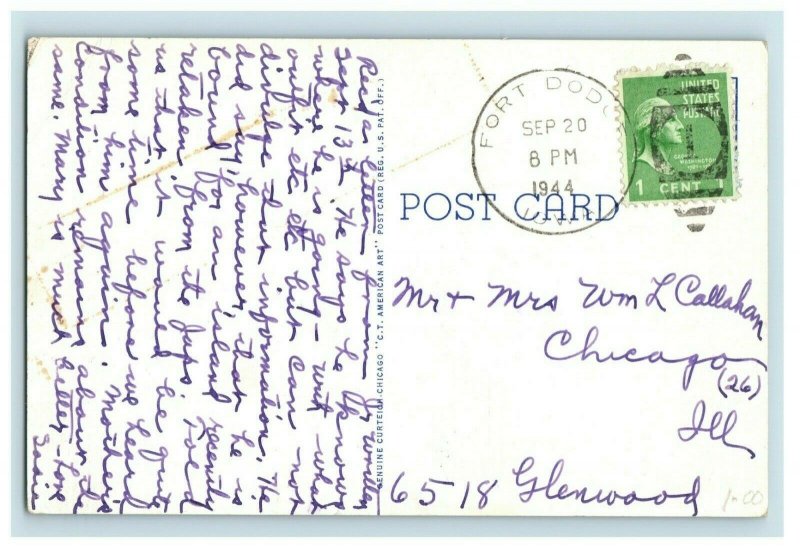 Rec'd a letter from Jr written
Sept 13th. He says he knows
where he is going - with what
outfit etc etc but can not
divulge that information. He
did say, however, that he is
bound for an island recently
retaken from the Japs. Told
us that it would be quite
some time before we heard
from him again. Mother's
condition remains about the
same. Mary is much better - Love
Sadie
GENUINE CURTEICH-CHICAGO "C.T. AMERICAN ART" POST CARD (REG. U.S. PAT. OFF.)
FORT DODGE
SEP 20
8 PM
1944
IOWA
UNITED
STATES
POSTAGE
GEORGE
WASHINGTON
1 CENT 1
POST CARD
Mr + Mrs Wm L Callahan
Chicago
(26)
Ill
6518 Glenwood
1-00